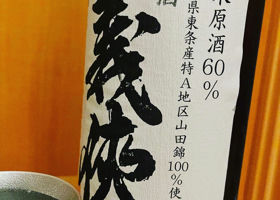 米原酒60%
県東条産特A地区山田錦100%使
酒
義侠